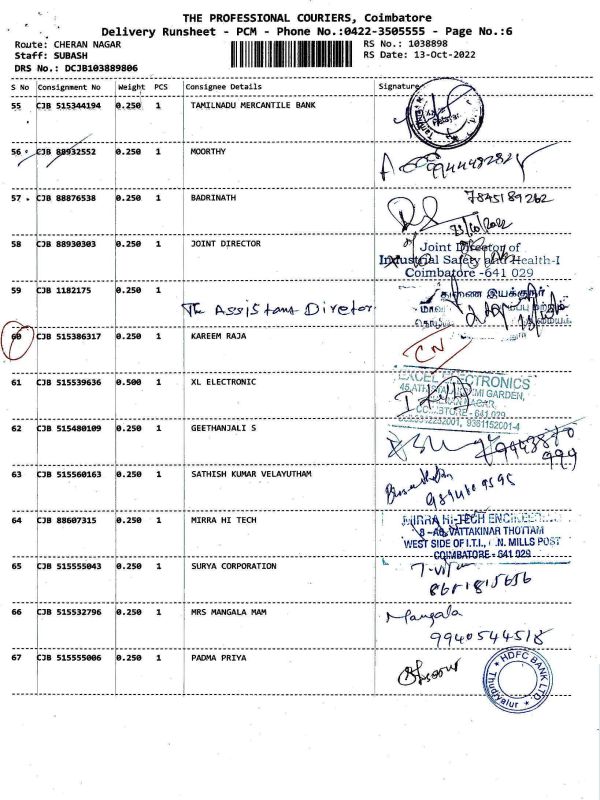 THE PROFESSIONAL COURIERS, Coimbatore
Delivery Runsheet - PCM - Phone No.:0422-3505555 - Page No.:6
Route: CHERAN NAGAR RS No.: 1038898
Staff: SUBASH RS Date: 13-Oct-2022
DRS No.: DCJB103889806
S No Consignment No Weight PCS Consignee Details Signature
55 CJB 515344194 0.250 1 TAMILNADU MERCANTILE BANK
56 CJB 88932552 0.250 1 MOORTHY
57 CJB 88876538 0.250 1 BADRINATH 7845189262
13/10/2022
58 CJB 88930303 0.250 1 JOINT DIRECTOR Joint Director of
Industrial Safety and Health-I
Coimbatore -641 029
59 CJB 1182175 0.250 1
The Assistant Director
60 CJB 515386317 0.250 1 KAREEM RAJA CN
61 CJB 515539636 0.500 1 XL ELECTRONIC EXCEL ELECTRONICS
GARDEN,
NAGAR,
COIMBATORE - 641 029
9361152001-4
62 CJB 515480109 0.250 1 GEETHANJALI S
63 CJB 515560163 0.250 1 SATHISH KUMAR VELAYUTHAM
64 CJB 88607315 0.250 1 MIRRA HI TECH MIRRA HI-TECH ENGINEERING
VATTAKINAR THOTTAM
WEST SIDE OF I.T.I., N. MILLS POST
COIMBATORE - 641 029
65 CJB 515555043 0.250 1 SURYA CORPORATION
8681815656
66 CJB 515532796 0.250 1 MRS MANGALA MAM Mangala
9940544518
67 CJB 515555006 0.250 1 PADMA PRIYA
HDFC BANK LTD.
Thudiyalur